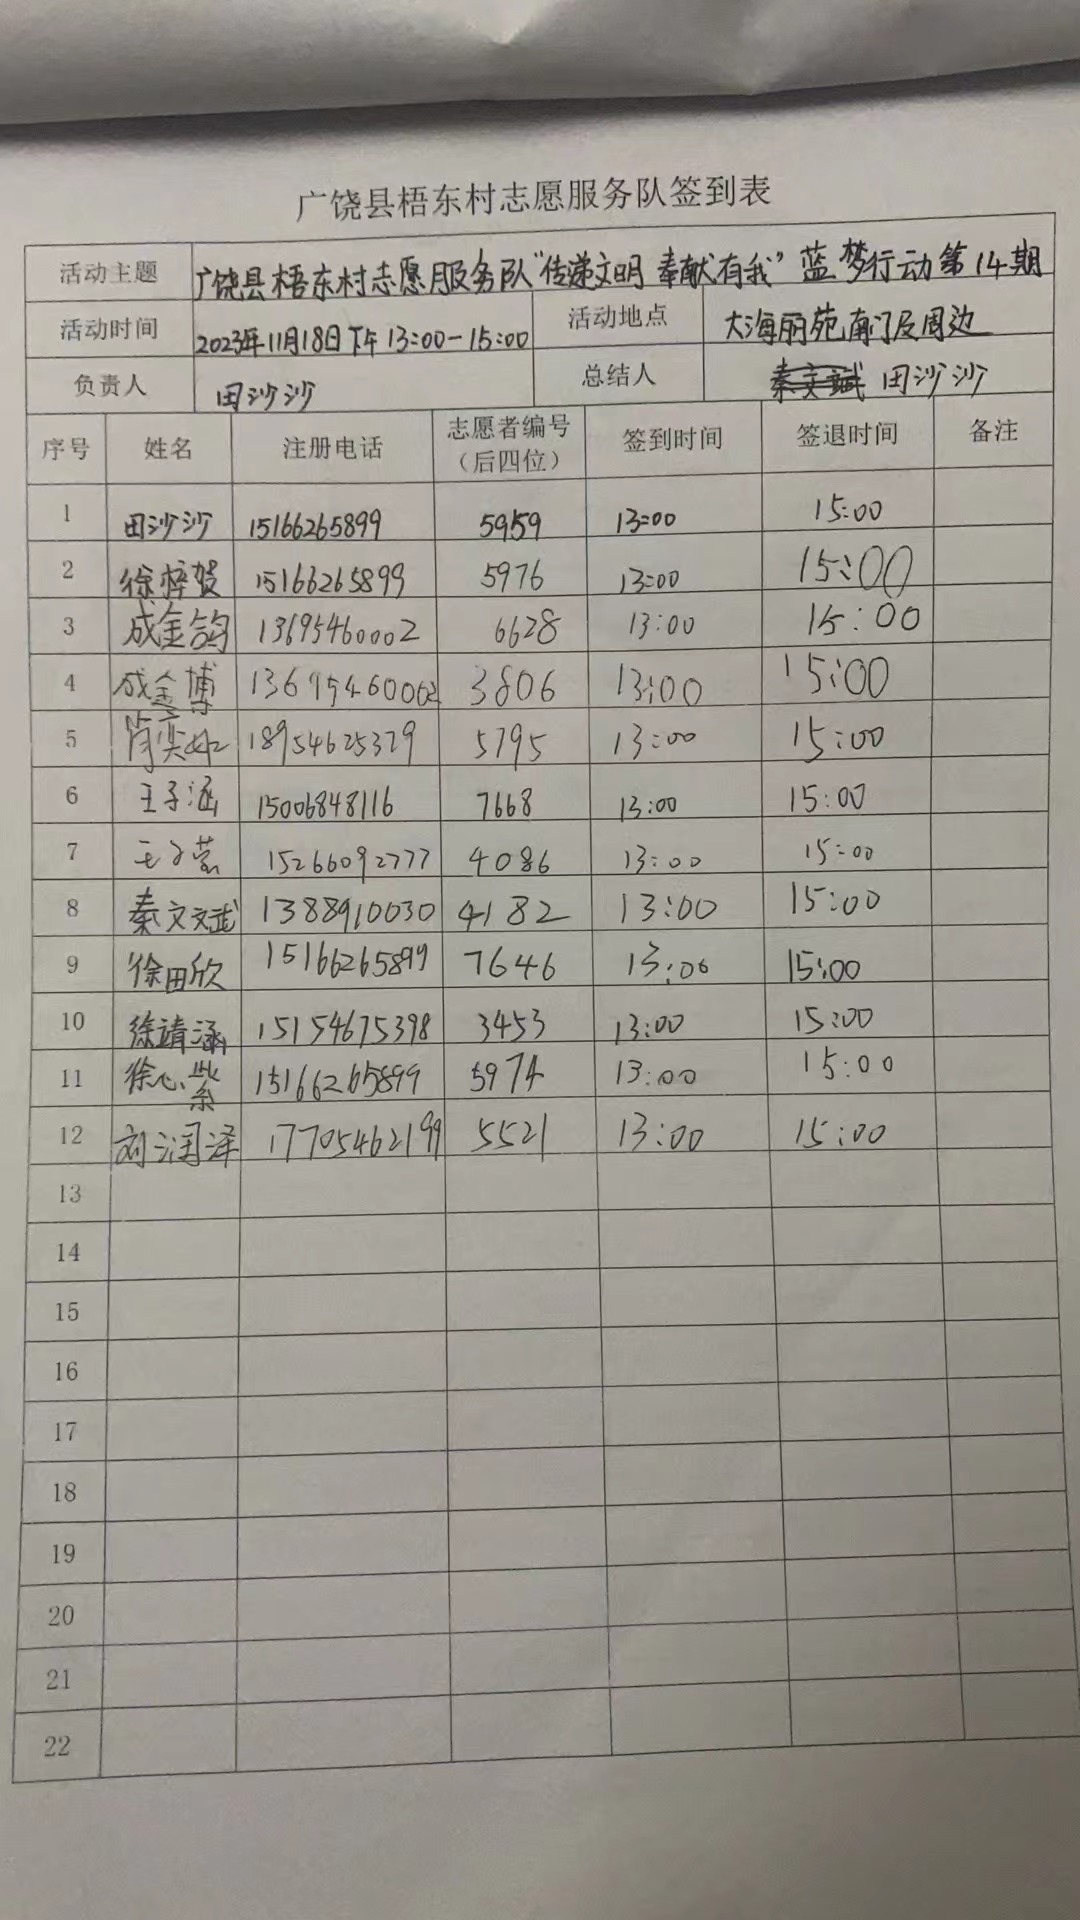 广饶县梧东村志愿服务队签到表
活动主题 广饶县梧东村志愿服务队“传递文明 奉献有我”蓝梦行动第14期
活动时间 2023年11月18日下午13:00-15:00 活动地点 大海丽苑南门及周边
负责人 田沙沙 总结人 田沙沙
序号 姓名 注册电话 志愿者编号（后四位） 签到时间 签退时间 备注
1 田沙沙 15166265899 5959 13:00 15:00
2 徐梓贺 15166265899 5976 13:00 15:00
3 成金鸽 13695460002 6628 13:00 15:00
4 成金博 13695460002 3806 13:00 15:00
5 肖奕如 18954625379 5795 13:00 15:00
6 王子涵 15006848116 7668 13:00 15:00
7 王子营 15266092777 4086 13:00 15:00
8 秦文斌 1388910030 4182 13:00 15:00
9 徐田欣 15166265899 7646 13:00 15:00
10 徐靖涵 15154675398 3453 13:00 15:00
11 徐心紫 15166265899 5974 13:00 15:00
12 刘润泽 17705462199 5521 13:00 15:00
13
14
15
16
17
18
19
20
21
22